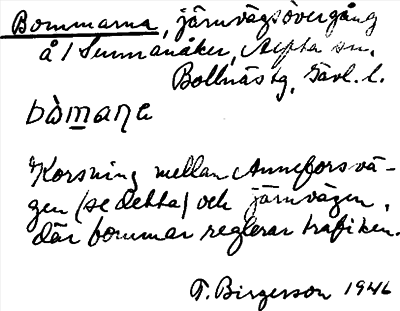 Bommarna, järnvägsövergång
å/ Sunnanåker, Alfta sn,
Bollnäs tg, Gävl. l.
bòmana
Korsning mellan Anneforsvä-
gen (se detta) och järnvägen,
där bommar reglerar trafiken.
T. Birgerson 1946